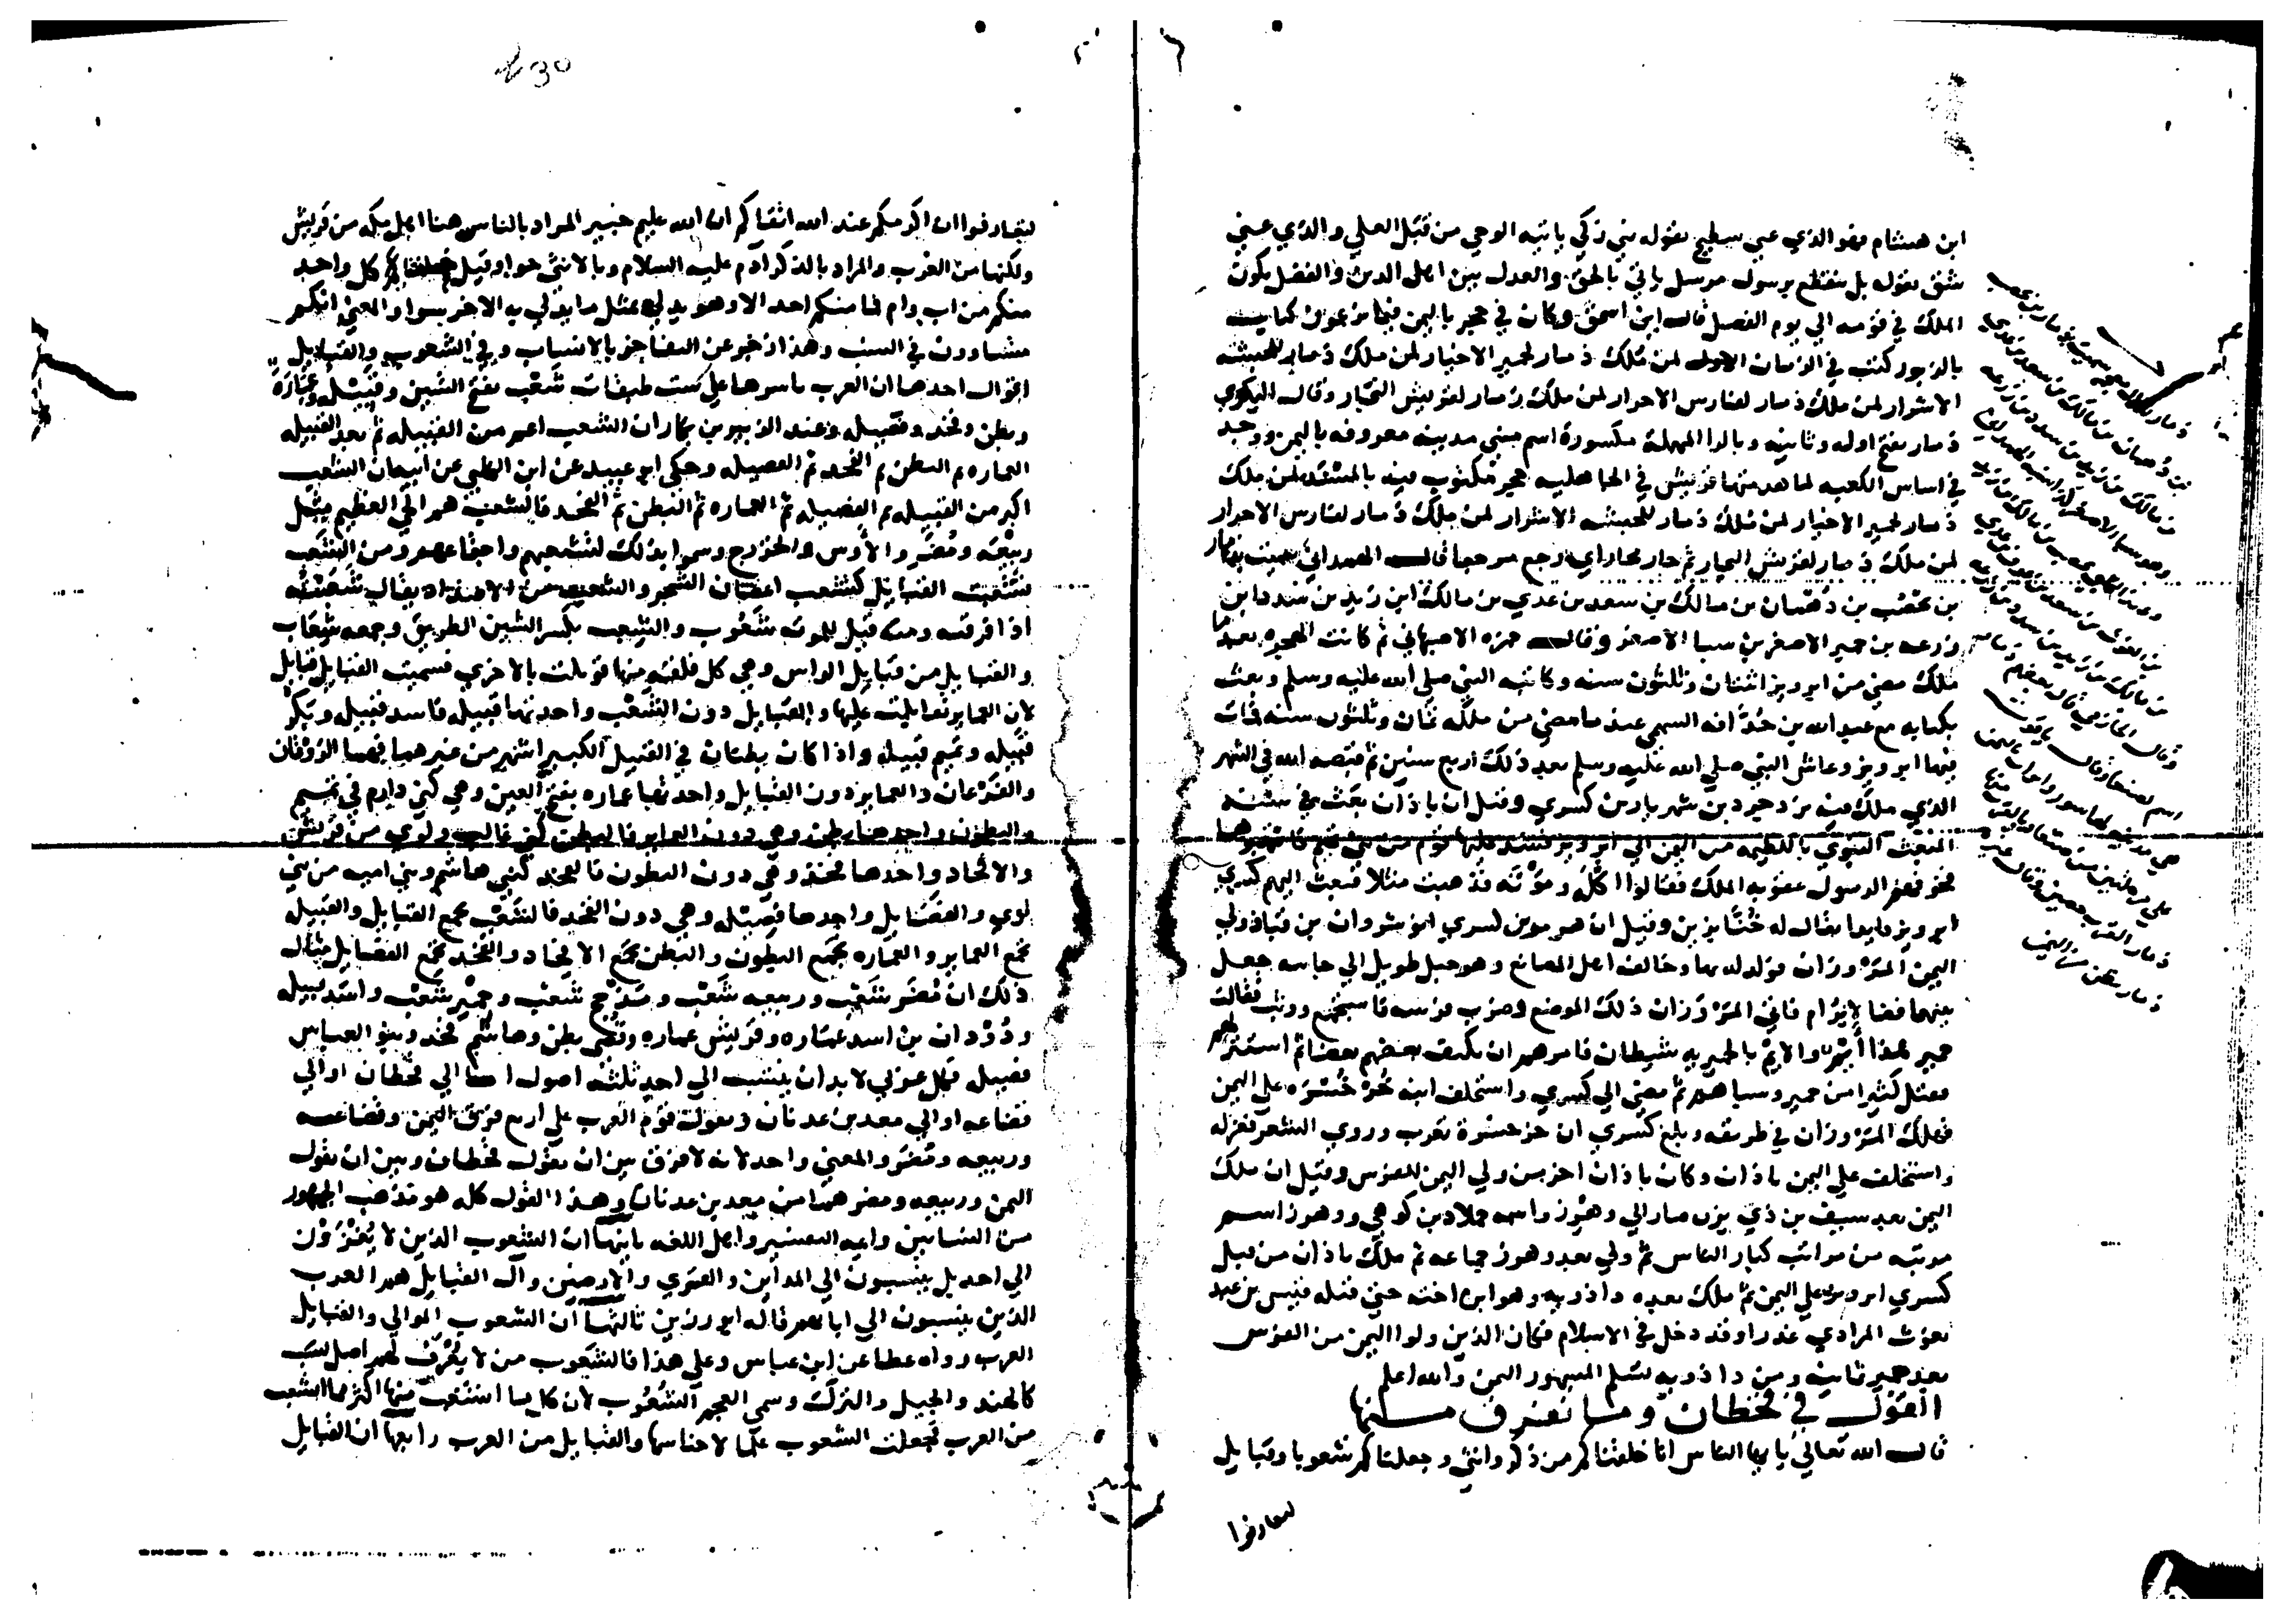 ابن هشام فهو الذي عني سطيح بقوله نبي زكي ياتيه الوحي من قبل العلي والذي عني
شق بقوله بل ينقطع برسول مرسل ياتي بالحق والعدل بين اهل الدين والفضل يكون
الملك في قومه الي يوم الفصل قال ابن اسحق وكان في حجر باليمن فيما يزعمون كتاب
بالزبور كتب في الزمان الاول لمن ملك ذمار لحمير الاخيار لمن ملك ذمار للحبشه
الاشرار لمن ملك ذمار لفارس الاحرار لمن ملك ذمار لقريش التجار وقال البكري
ذمار بفتح اوله وثانيه وبالرا المهملة مكسورة اسم مبني مدينه معروفه باليمن ووجد
في اساس الكعبه لما هدمتها قريش في الجاهليه حجر مكتوب فيه بالمسند لمن ملك
ذمار لحمير الاخيار لمن ملك ذمار للحبشه الاشرار لمن ملك ذمار لفارس الاحرار
لمن ملك ذمار لقريش التجار ثم حار محار اي رجع مرجعا قال الهمداني سميت بذمار
بن يحصب بن دهمان بن مالك بن سعد بن عدي بن مالك ابن زيد بن سدد بن
زرعه بن حمير الاصغر بن سبا الاصغر وقال حمزه الاصبهاني ثم كانت الهجره بعد ما
ملك مضي من ابرويز اثنتان وثلثون سنه وكاتبه النبي صلي الله عليه وسلم وبعث
بكتابه مع عبد الله بن حذافه السهمي عند ما مضي من ملكه ثمان وثلثون سنه فمات
فيها ابرويز وعاش النبي صلي الله عليه وسلم بعد ذلك اربع سنين ثم قبضه الله في الشهر
الذي ملك فيه يزدجرد بن شهريار بن كسري وقيل ان باذان بعث في سنه
المبعث النبوي باللطيمه من اليمن الي ابرويز فشد عليها قوم من بني تميم فانتهبوها
نحو فعقر الرسول عقوبه الملك فقالوا اكل وموته فذهبت مثلا فبعث اليهم كسري
ابرويز قايدا يقال له وقيل ان هرموين لسري انوشروان بن قباذ ولي
اليمن المروزان فولد له بها وخالف اهل المصانع وهو جبل طويل الي جانبه جبل
بينهما فضا لا يرام فاتي المروزان ذلك الموضع وضرب فرسه فاستجمع ووثب فقالت
حمير هذا ايم والايم بالحميريه شيطان فامرهم ان يكتف بعضهم بعضا ثم استنزلهم
فقتل كثيرا من حمير وسباهم ثم مضي الي كسري واستخلف ابنه خرخسره علي اليمن
فهلك المروزان في طريقه وبلغ كسري ان خرخسرة تعرب وروي الشعر فعزله
واستخلف علي اليمن باذان وكان باذان اخر من ولي اليمن للفرس وقيل ان ملك
اليمن بعد سيف بن ذي يزن صار الي وهرز واسمه وهرز اسم
مرتبه من مراتب كبار الناس ثم ولي بعد وهرز جماعه ثم ملك باذان من قبل
كسري ابرويز علي اليمن ثم ملك بعده داذويه وهو ابن اخته حتي قتله قيس بن عبد
يغوث المرادي غدرا وقد دخل في الاسلام فكان الذين ولوا اليمن من الفرس
بعد حمير ثمانيه ومن داذويه تسلم المسلمون اليمن والله اعلم
القول في قحطان وما تفرق منها
قال الله تعالي يا ايها الناس انا خلقناكم من ذكر وانثي وجعلناكم شعوبا وقبايل
لتعارفوا
لتعارفوا ان اكرمكم عند الله اتقاكم ان الله عليم خبير المراد بالناس هنا اهل مكه من قريش
ولكنها من العرب والمراد بالذكر ادم عليه السلام وبالانثي حوا وقيل كل واحد
منكم من اب وام فما منكم احد الا وهو يدلي بمثل ما يدلي به الاخر سوا والمعني انكم
متساوون في النسب وهذا زجر عن التفاخر بالانساب وفي الشعوب والقبايل
اقوال احدها ان العرب باسرها علي ست طبقات شعب بفتح الشين وقبيله وعمارة
وبطن وفخذ وفصيله وعند الزبير بن بكار ان الشعب اعم من القبيله ثم بعد القبيله
العماره ثم البطن ثم الفخذ ثم الفصيله وحكي ابو عبيد عن ابن الكلبي عن ابيه ان الشعب
اكبر من القبيله ثم الفصيله ثم العماره ثم البطن ثم الفخذ فالشعب هو الحي العظيم مثل
ربيعه ومضر والاوس والخزرج وسموا بذلك لتشعبهم واجتماعهم ومن الشعب
تشعبت القبايل كتشعب اغصان الشجر والشعب من الاضداد يقال شعبته
اذا فرقته ومنه قيل للموت شعوب والشعب بكسر الشين الطريق وجمعه شعاب
والقبايل من قبايل الراس وهي كل فلقه منها قوبلت بالاخري فسميت القبايل قبايل
لان العماير تقابلت عليها والقبايل دون الشعب واحدتها قبيله فاسد قبيله وبكر
قبيله وتميم قبيله واذا كان بطنان في القبيل الكبير اشهر من غيرهما فهما الروقان
والفرعان والعماير دون القبايل واحدتها عماره بفتح العين وهي كبني دارم في تميم
والبطون واحدها بطن وهي دون العماير فالبطن كبني غالب ولوي من قريش
والافخاذ واحدها فخذ وهي دون البطون فالفخذ كبني هاشم وبني اميه من بني
لوي والفصايل واحدها فصيله وهي دون الفخذ فالشعب يجمع القبايل والقبيله
تجمع العماير والعماره تجمع البطون والبطن يجمع الافخاذ والفخذ يجمع الفصايل مثال
ذلك ان مضر شعب وربيعه شعب ومذحج شعب وحمير شعب واسد قبيله
ودودان بن اسد عماره وقريش عماره وقصي بطن وهاشم فخذ وبنو العباس
فصيله فكل عربي لا بد ان ينسب الي احد ثلثه اصول اما الي قحطان او الي
قضاعه او الي معد بن عدنان ويقول قوم العرب علي اربع فرق اليمن وقضاعه
وربيعه ومضر والمعني واحد لانه لا فرق بين ان يقول قحطان وبين ان يقول
اليمن وربيعه ومضر هما من معد بن عدنان وهذا القول كله هو مذهب الجمهور
من النسابين وايمه التفسير واهل اللغه ثانيها ان الشعوب الذين لا يعتزون
الي احد بل ينسبون الي المداين والقري والارضين وان القبايل هم العرب
الذين ينسبون الي ابايهم قاله ابو رزين ثالثها ان الشعوب الموالي والقبايل
العرب رواه عطا عن ابن عباس وعلي هذا فالشعوب من لا يعرف لهم اصل نسب
كالهند والجبل والترك وسمي العجم الشعوب لان كل ما انشعب منها اكثر مما انشعب
من العرب فجعلت الشعوب علما لاجناسها والقبايل من العرب رابعها ان القبايل